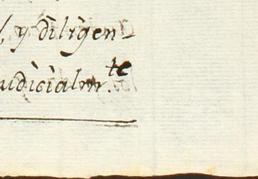 , y dilìgen
udicialm.te